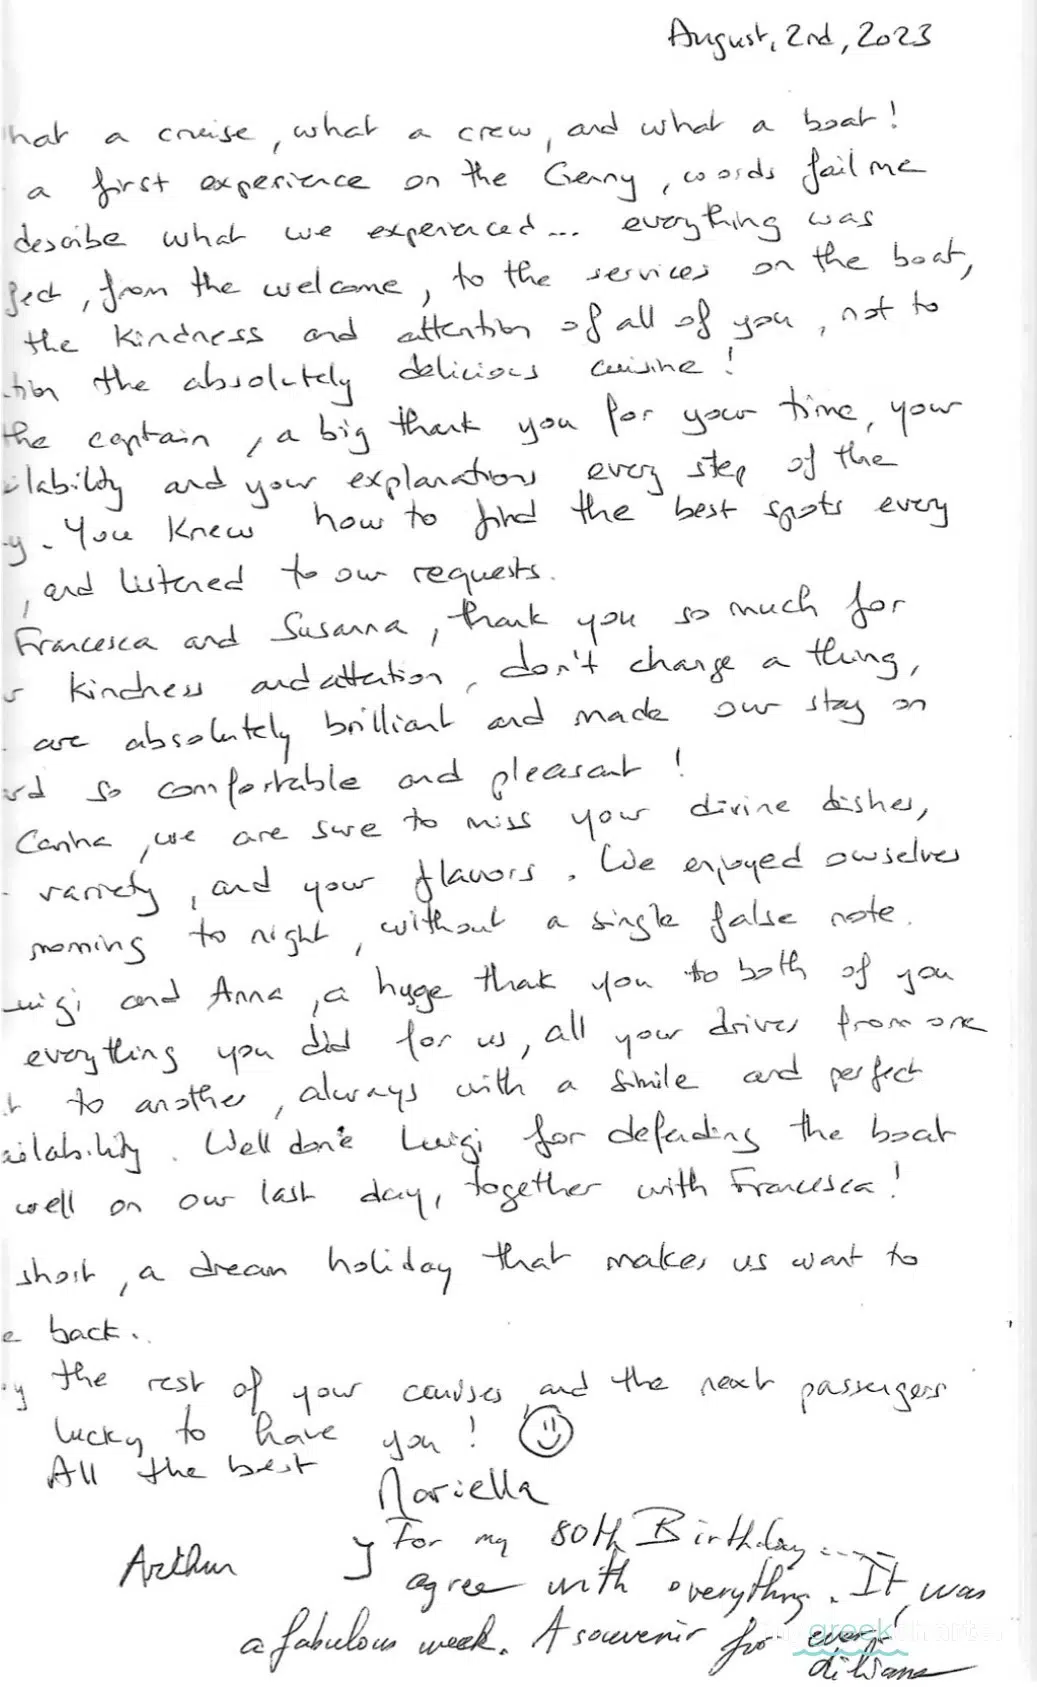 August, 2nd, 2023
hat a cruise, what a crew, and what a boat!
a first experience on the Genny, words fail me
describe what we experienced... everything was
fect, from the welcome, to the services on the boat,
the kindness and attention of all of you, not to
tion the absolutely delicious cuisine!
the captain, a big thank you for your time, your
ilability and your explanations every step of the
y. You knew how to find the best spots every
, and listened to our requests.
Francesca and Susanna, thank you so much for
r kindness and attention, don't change a thing,
are absolutely brilliant and made our stay on
rd so comfortable and pleasant!
we are sure to miss your divine dishes,
variety, and your flavors. We enjoyed ourselves
morning to night, without a single false note.
uigi and Anna, a huge thank you to both of you
everything you did for us, all your drives from one
t to another, always with a smile and perfect
ailability. Well done Luigi for defending the boat
well on our last day, together with Francesca!
short, a dream holiday that makes us want to
e back..
y the rest of your cruises and the next passengers
lucky to have you!
All the best
Mariella
Arthur
For my 80th Birthday.....
agree with everything. It was
a fabulous week. A souvenir for ever!
Liliane
greek charter